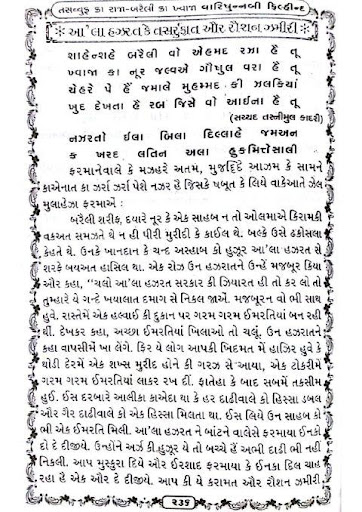 તસવ્વુફ કા રાજા-બરેલી કા ખ્વાજા વારિષુન્નબી ફિલ્હિન્દ
આ'લા હઝરત કે તસર્રુફાત ઔર રૌશન ઝમીરી
શાહેન્શહે બરેલી વો એહમદ રઝા હે તૂ
ખ્વાજા કા નૂર જલ્વએ ગૌષુલ વરા હે તૂ
ચેહરે પે હેં જમાલે મુહમ્મદ કી ઝલકિયાં
ખુદ દેખતા હે રબ જિસે વો આઈના હે તૂ
(સય્યદ તસ્નીમુલ કાદરી)
નઝરતો ઈલા બિલા દિલ્લાહે જમઅન
ક ખરદ લતિન અલા હુકમિત્તેસાલી
ફરમાનેવાલે કે મઝહરે અતમ, મુજદ્દિદે આઝમ કે સામને
કાએનાત કા ઝર્રા ઝર્રા પેશે નઝર હે જિસકે ષબૂત કે લિયે વાકેઆતે ઝેલ
મુલાહેઝા ફરમાએં :
બરેલી શરીફ, દયારે નૂર કે એક સાહબ ન તો ઓલમાએ કિરામકી
વકઅત સમઝતે થે ન હી પીરી મુરીદી કે કાઈલ થે. બલ્કે ઉસે ઢકોસલા
કેહતે થે. ઉનકે ખાનદાન કે ચન્દ અસ્હાબ કો હુઝૂર આ'લા હઝરત સે
શરફે બયઅત હાસિલ થા. એક રોઝ ઉન હઝરાતને ઉન્હેં મજબૂર કિયા
ઔર કહા, ''ચલો આ'લા હઝરત સરકાર કી ઝિયારત હી તો કર લો તો
તુમ્હારે યે ગન્દે ખયાલાત દમાગ સે નિકલ જાએં. મજબૂરન વો ભી સાથ
હુવે. રાસ્તેમેં એક હલવાઈ કી દુકાન પર ગરમ ગરમ ઈમરતિયાં બન રહી
થીં. દેખકર કહા, અચ્છા ઈમરતિયાં ખિલાઓ તો ચલૂં. ઉન હઝરાતને
કહા વાપસીમેં ખા લેંગે. ફિર યે લોગ આપકી ખિદમત મેં હાઝિર હુવે કે
થોડી દેરમેં એક શખ્સ મુરીદ હોને કી ગરઝ સે આયા, એક ટોકરીમેં
ગરમ ગરમ ઈમરતિયાં લાકર રખ દીં. ફાતેહા કે બાદ સબમેં તકસીમ
હુઈ. ઈસ દરબારે આલીકા કાએદા થા કે હર દાઢીવાલે કો હિસ્સા ડબલ
ઔર ગૈર દાઢીવાલે કો એક હિસ્સા મિલતા થા. ઈસ લિયે ઉન સાહબ કો
ભી એક ઈમરતિ મિલી. આ'લા હઝરત ને બાંટને વાલેસે ફરમાયા ઈનકો
દો દે દીજીયે. ઉન્હોંને અર્ઝ કી હુઝૂર યે તો બચ્ચે હૈં અભી દાઢી ભી નહીં
નિકલી. આપ મુસ્કુરા દિયે ઔર ઈરશાદ ફરમાયા કે ઈનકા દિલ ચાહ
રહા હે એક ઔર દે દીજીયે. આપ કી યે કરામત ઔર રૌશન ઝમીરી
૨૩૬